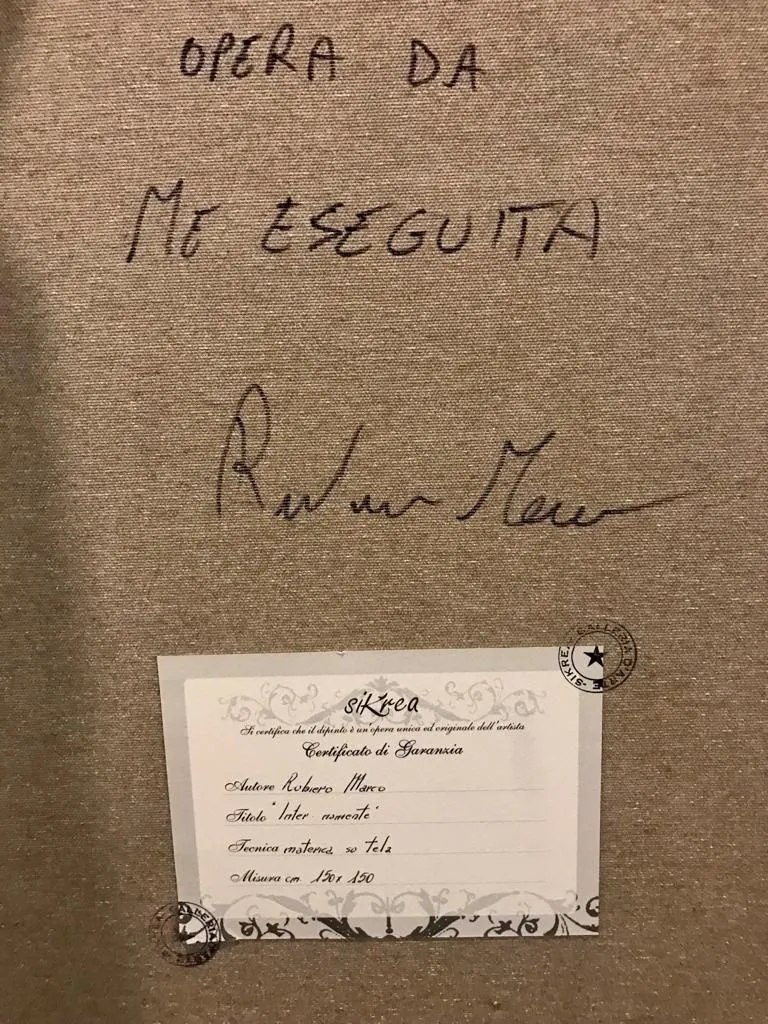 OPERA DA
ME ESEGUITA
SIKREA GALLERIA D'ARTE
siKrea
Si certifica che il dipinto è un'opera unica ed originale dell'artista
Certificato di Garanzia
Autore Rubiero Marco
Titolo "Inter namente"
Tecnica materica su tela
Misura cm. 150x150